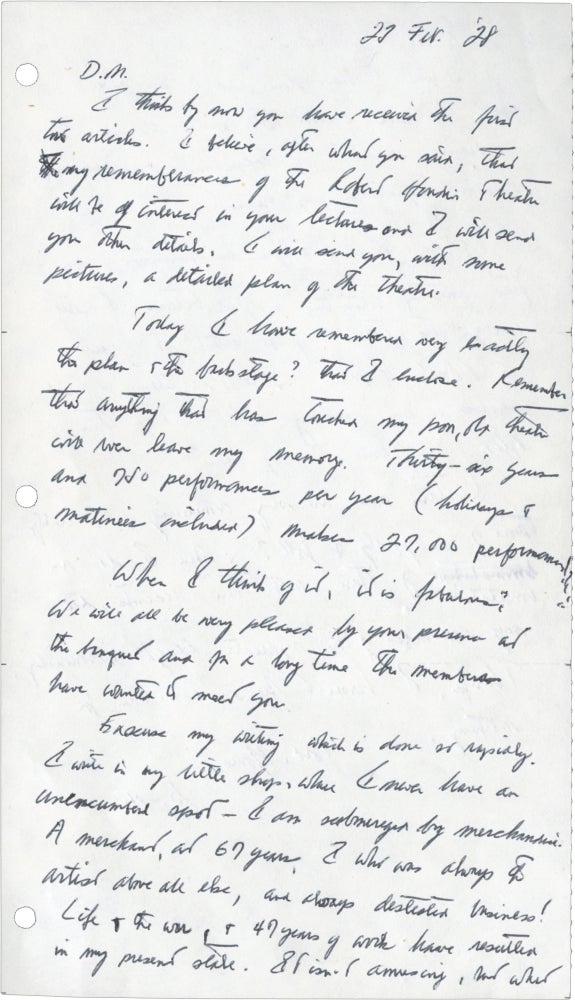 27 Feb. '28
D.M.
I think by now you have received the first
two articles. I believe, after what you said, that
my rememberances of the Robert Houdin Theatre
will be of interest in your lectures and I will send
you other details. I will send you, with some
pictures, a detailed plan of the theatre.
Today I have remembered very exactly
the plan & the backstage? that I enclose. Remember
that anything that has touched my poor, old theatre
will never leave my memory. Thirty-six years
and 750 performances per year (holidays &
matinées included) makes 27,000 performances!
When I think of it, it is fabulous!
We will all be very pleased by your presence at
the banquet and for a long time the members
have wanted to meet you.
Excuse my writing which is done so rapidly.
I write in my little shop, where I never have an
unencumbered spot – I am submerged by merchandise.
A merchant, at 67 years, I who was always the
artist above all else, and always detested business!
Life & the war, & 47 years of work have resulted
in my present state. It isn't amusing, but what